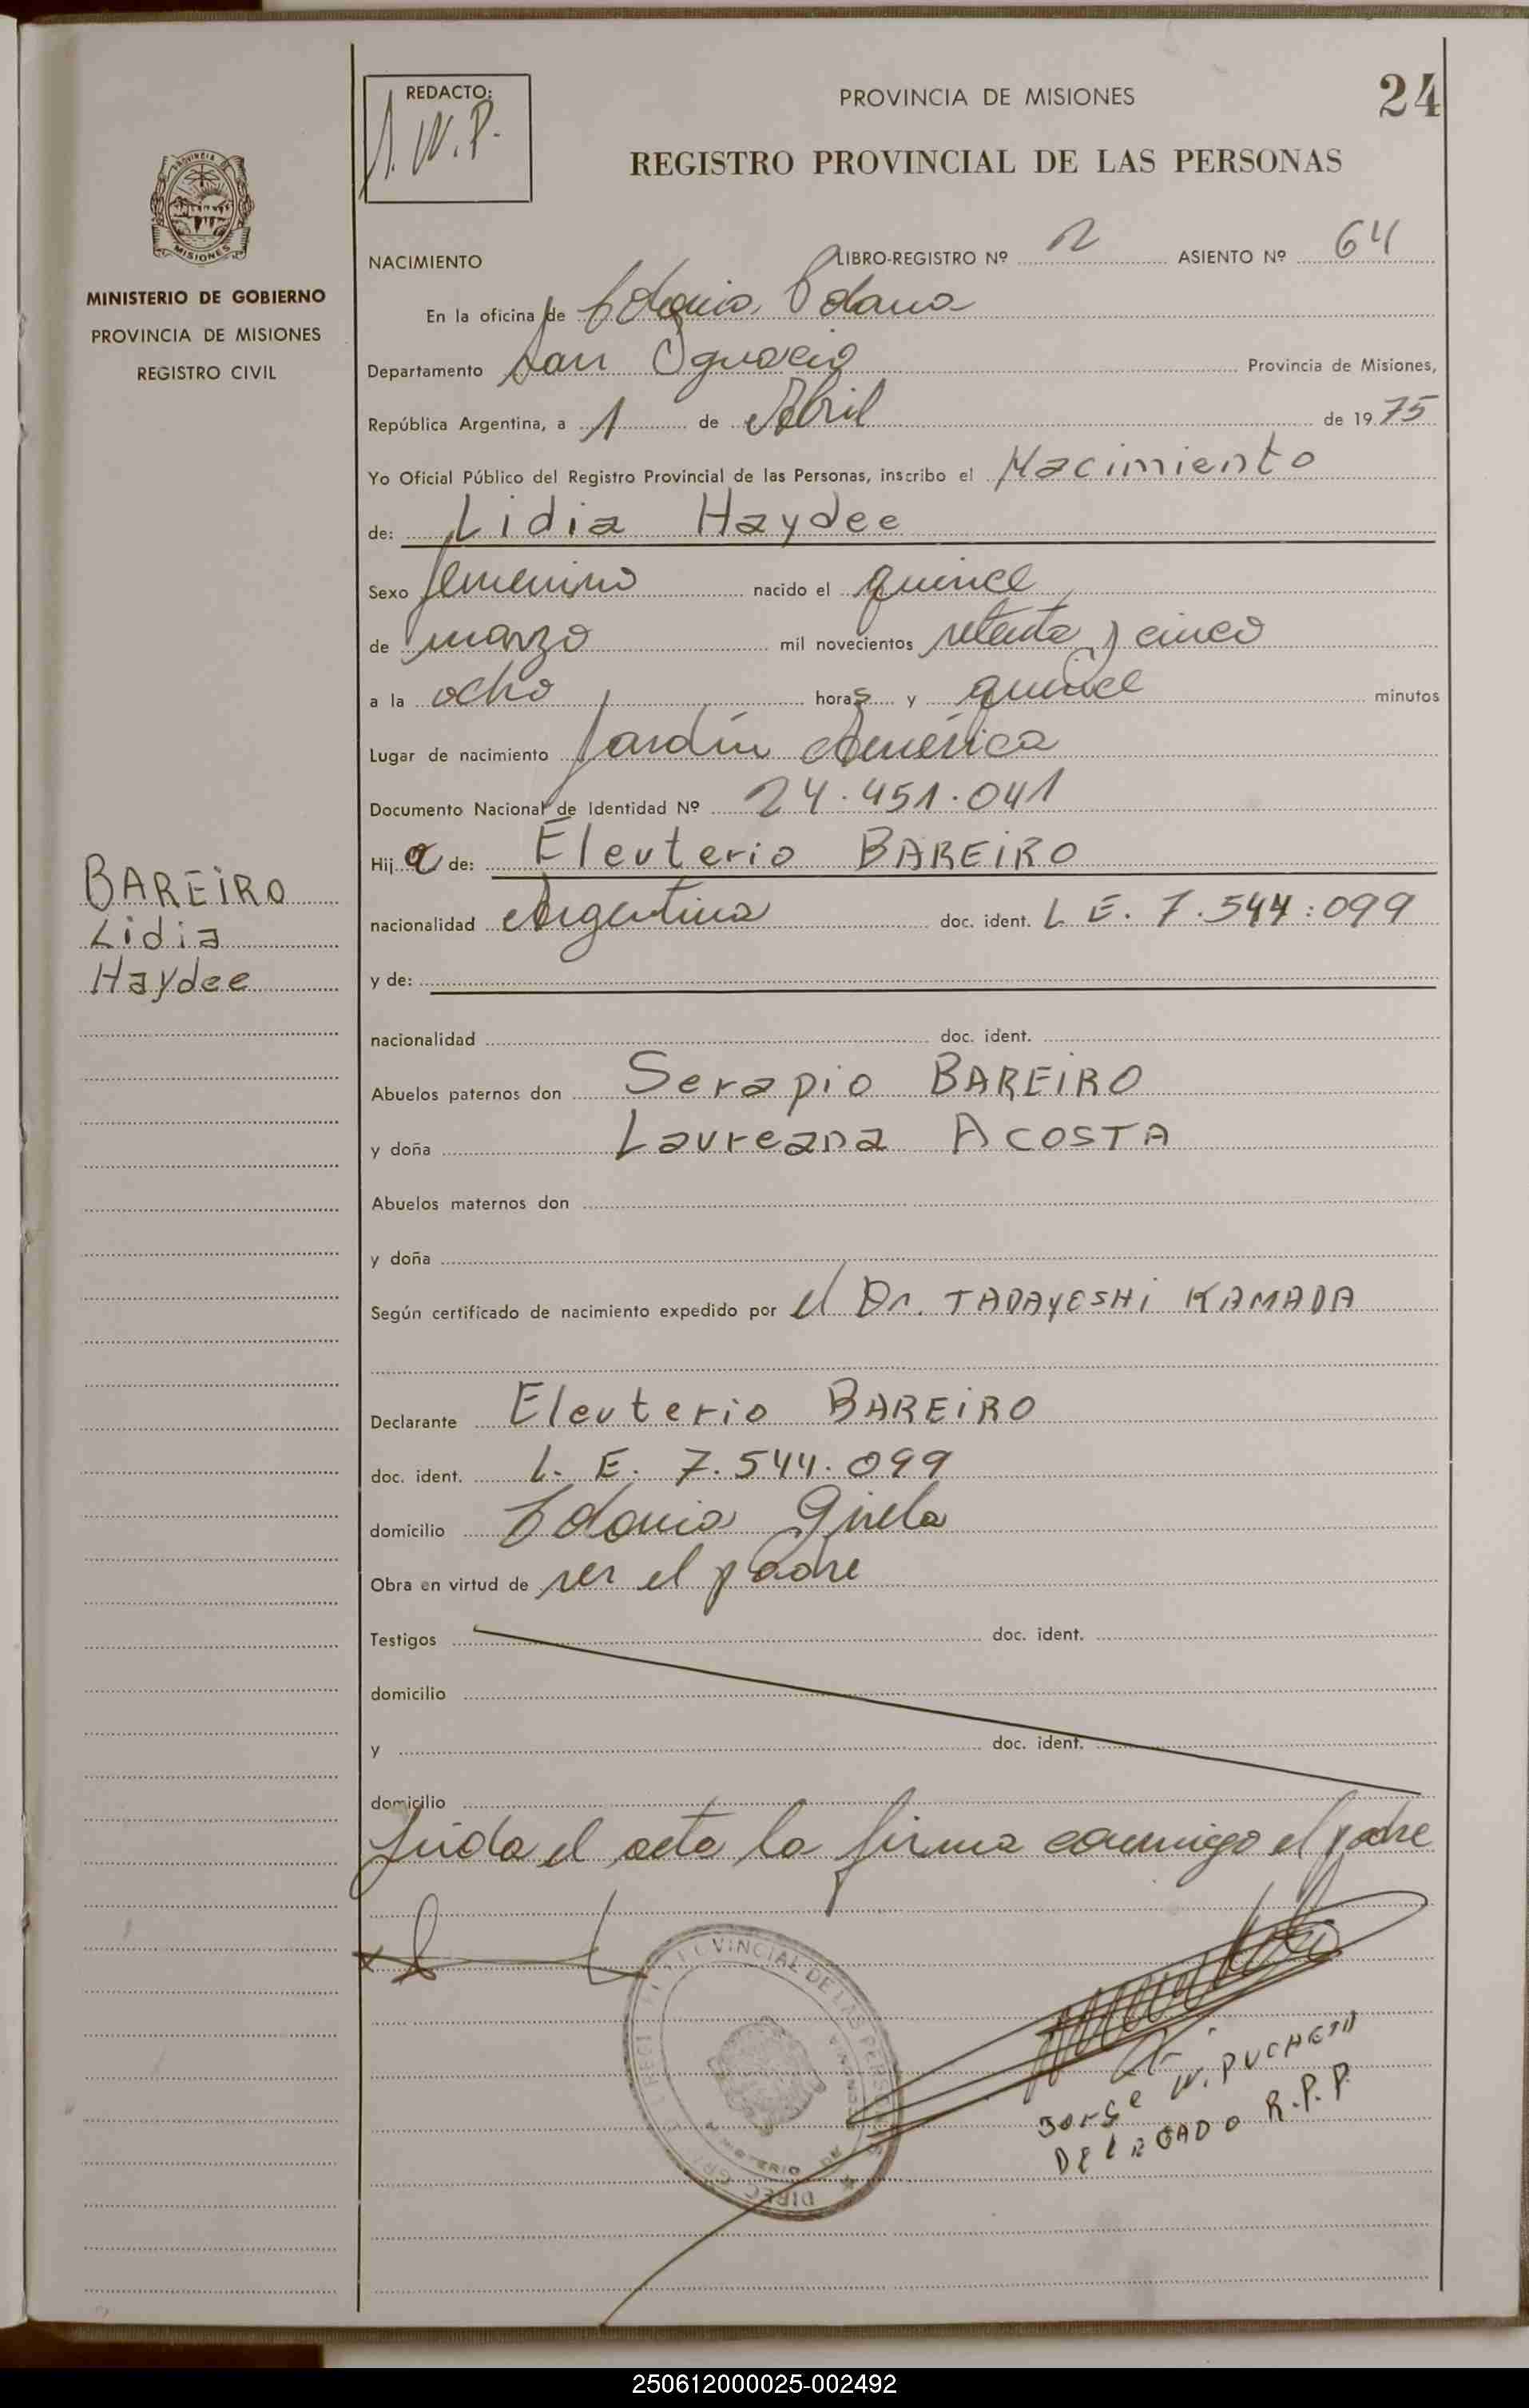 24
REDACTO:
J. W. P.
PROVINCIA DE MISIONES
REGISTRO PROVINCIAL DE LAS PERSONAS
MISIONES
MINISTERIO DE GOBIERNO
PROVINCIA DE MISIONES
REGISTRO CIVIL
NACIMIENTO LIBRO-REGISTRO Nº 2 ASIENTO Nº 64
En la oficina de Colonia Polana
Departamento San Ignacio Provincia de Misiones,
República Argentina, a 1 de Abril de 1975
Yo Oficial Público del Registro Provincial de las Personas, inscribo el Nacimiento
de: Lidia Haydee
Sexo femenino nacido el quince
de marzo mil novecientos setenta y cinco
a la ocho horas y quince minutos
Lugar de nacimiento Jardín América
Documento Nacional de Identidad Nº 24.451.041
Hija de: Eleuterio BAREIRO
BAREIRO
Lidia
Haydee
nacionalidad Argentina doc. ident. L E. 7.544.099
y de:
nacionalidad doc. ident.
Abuelos paternos don Serapio BAREIRO
y doña Laureana ACOSTA
Abuelos maternos don
y doña
Según certificado de nacimiento expedido por el Dr. TADAYESHI KAMADA
Declarante Eleuterio BAREIRO
doc. ident. L. E. 7.544.099
domicilio Colonia Gisela
Obra en virtud de ser el padre
Testigos doc. ident.
domicilio
y doc. ident.
domicilio
Leída el acta la firma conmigo el padre
JORGE W. PUCHETA
DELEGADO R.P.P.
250612000025-002492